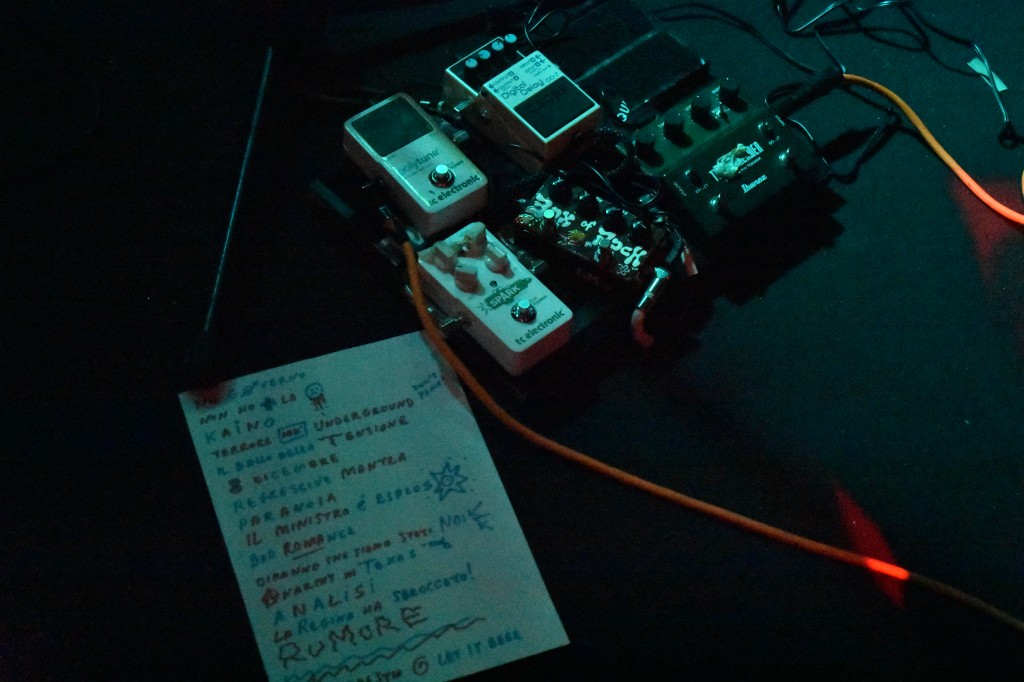 Digital Delay DD-7
polytune
tc electronic
Ibanez
Box of Rock
SPARK
tc electronic
NON HO LA
KAINO
TERRORE UNDERGROUND
IL BALLO DELLA TENSIONE
8 DICEMBRE
REGRESSIVE MANTRA
PARANOIA
IL MINISTRO É ESPLOSO
BAD ROMANCE
DIRANNO CHE SIAMO STATI NOI
ANARCHY IN TEXAS
ANALISI
LA REGINA HA SBROCCATO!
RUMORE
LET IT BEER